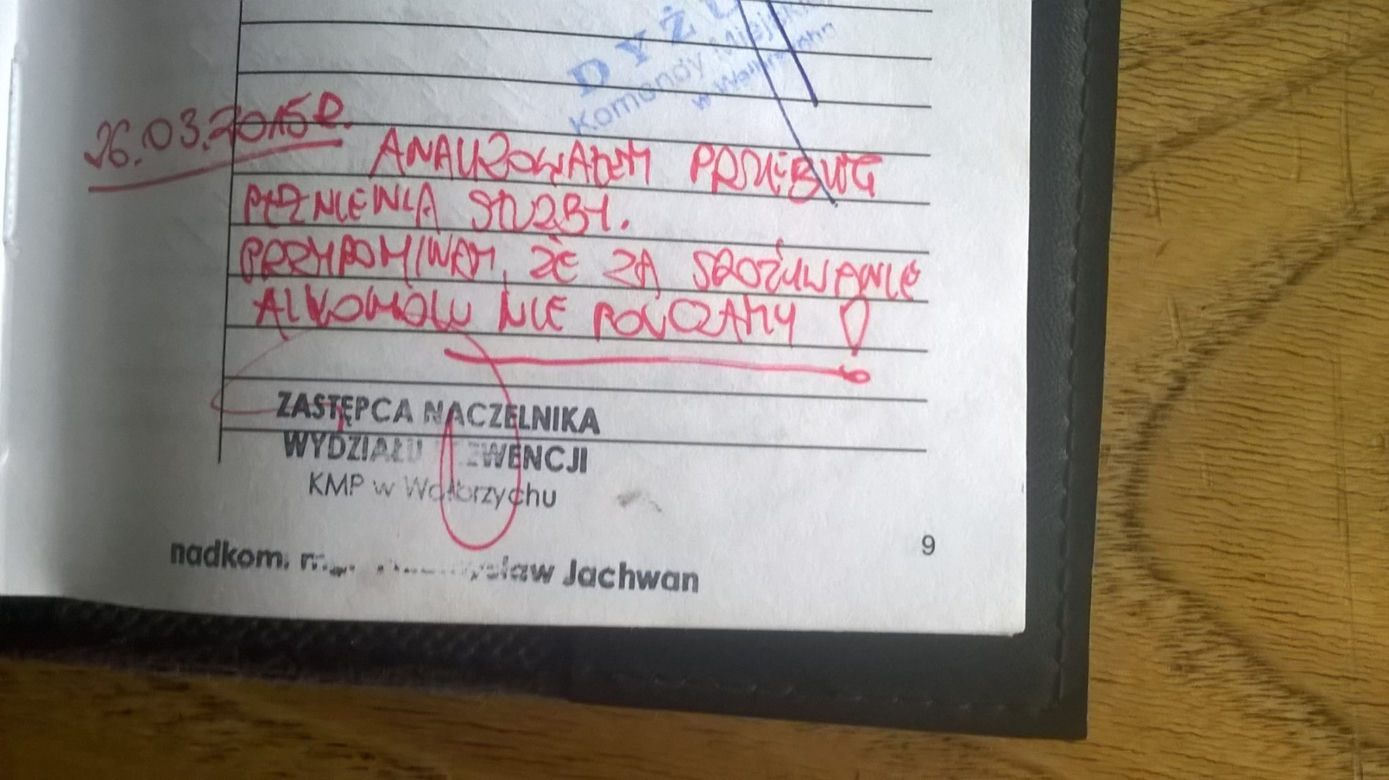 DYŻU
Komendy Miejski
w Wałbrzychu
26.03.2015R.
ANALIZOWAŁEM PRZEBIEG
PEŁNIENIA SŁUŻBY.
PRZYPOMINAM, ŻE ZA SPOŻYWANIE
ALKOHOLU NIE POUCZAMY!
ZASTĘPCA NACZELNIKA
WYDZIAŁU EWENCJI
KMP w Wałbrzychu
nadkom. ysław Jachwan
9